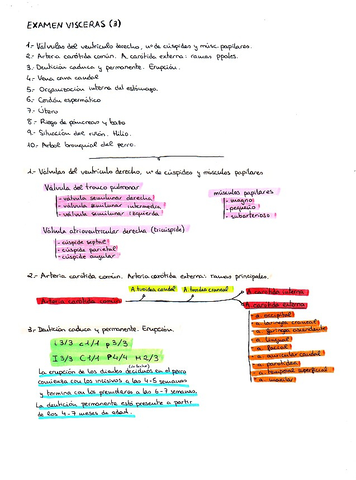 EXAMEN VISCERAS (3)
1.- Válvulas del ventrículo derecho, nº de cúspides y músc. papilares.
2.- Arteria carótida común. A. carótida externa: ramas ppales.
3.- Dentición caduca y permanente. Erupción.
4.- Vena cava caudal
5.- Organización interna del estómago.
6.- Cordón espermático
7.- Útero
8.- Riego de páncreas y bazo
9.- Situación del riñón. Hilio.
10.- Árbol bronquial del perro.
1.- Válvulas del ventrículo derecho, nº de cúspides y músculos papilares
Válvula del tronco pulmonar
- válvula semilunar derecha
- válvula semilunar intermedia
- válvula semilunar izquierda
músculos papilares
- magno
- pequeño
- subarterioso
Válvula atrioventricular derecha (tricúspide)
- cúspide septal
- cúspide parietal
- cúspide angular
2.- Arteria carótida común. Arteria carótida externa: ramas principales.
A tiroidea caudal
A tiroidea craneal
A carótida interna
Arteria carótida común
A carótida externa
- a. occipital
- a. laríngea craneal
- a. faríngea ascendente
- a. lingual
- a. facial
- a. auricular caudal
- a. parotídea
- a. temporal superficial
- a. maxilar
3.- Dentición caduca y permanente. Erupción.
i 3/3 c 1/1 p 3/3
I 3/3 C 1/1 P 4/4 M 2/3
La erupción de los dientes deciduos en el perro
comienza con los incisivos a las 4-5 semanas
y termina con los premolares a las 6-7 semanas.
La dentición permanente está presente a partir
de los 4-7 meses de edad.